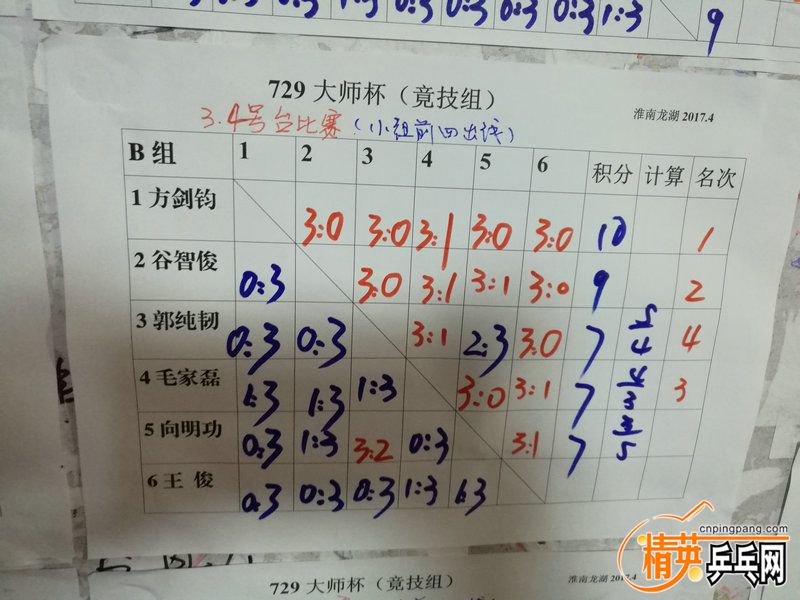 0:3 0:3 0:3 1:3
9
729 大师杯（竟技组）
淮南龙湖 2017.4
3.4号台比赛（小组前四出线）
B 组 1 2 3 4 5 6 积分 计算 名次
1 方剑钧 3:0 3:0 3:1 3:0 3:0 10 1
2 谷智俊 0:3 3:0 3:1 3:1 3:0 9 2
3 郭纯韧 0:3 0:3 3:1 2:3 3:0 7 5/4 4
4 毛家磊 1:3 1:3 1:3 3:0 3:1 7 4/3 3
5 向明功 0:3 1:3 3:2 0:3 3:1 7 3/5
6 王 俊 0:3 0:3 0:3 1:3 1:3
cnpingpang.com
精英乒乓网
729 大师杯（竟技组）
淮南龙湖 2017.4